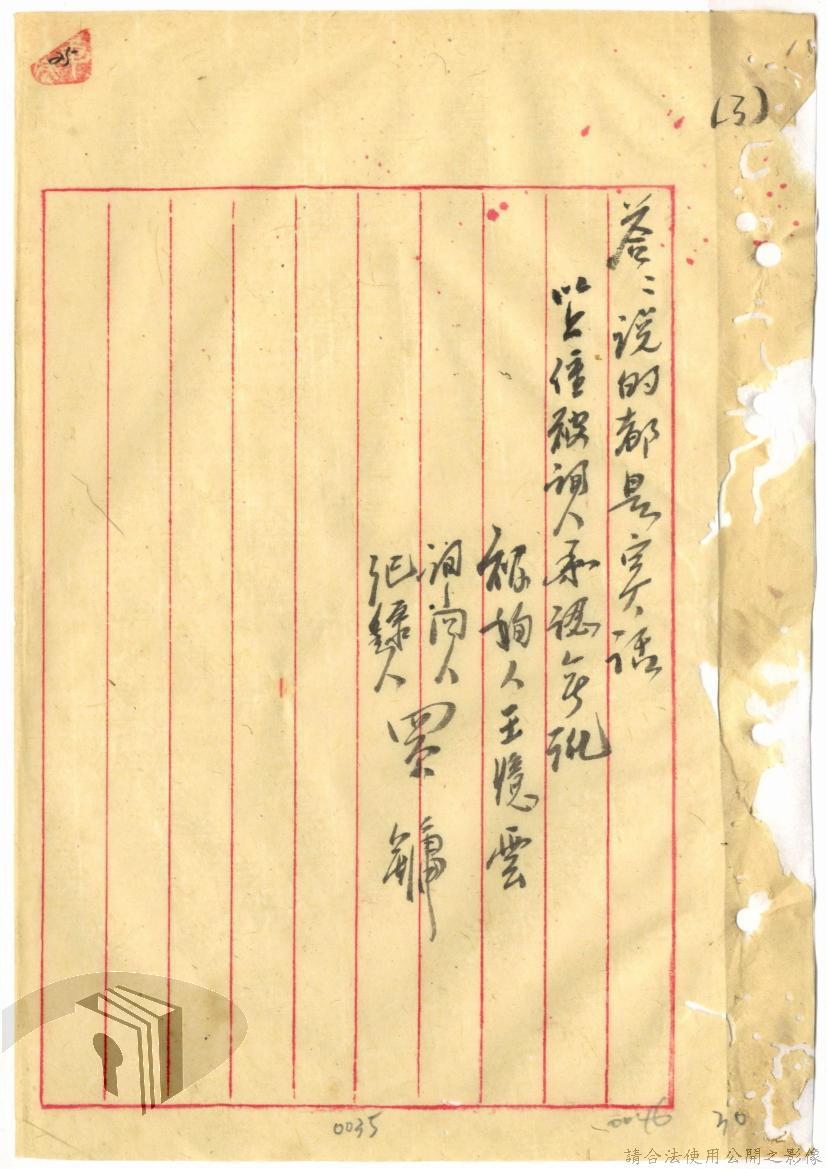 (3)
答:說的都是实話
以上經被詢人承認無訛
被詢人王憶雲
詢問人
紀錄人
0035
0046
30
請合法使用公開之影像